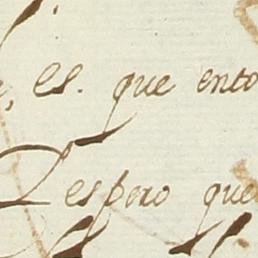 es. que ento
Despero que